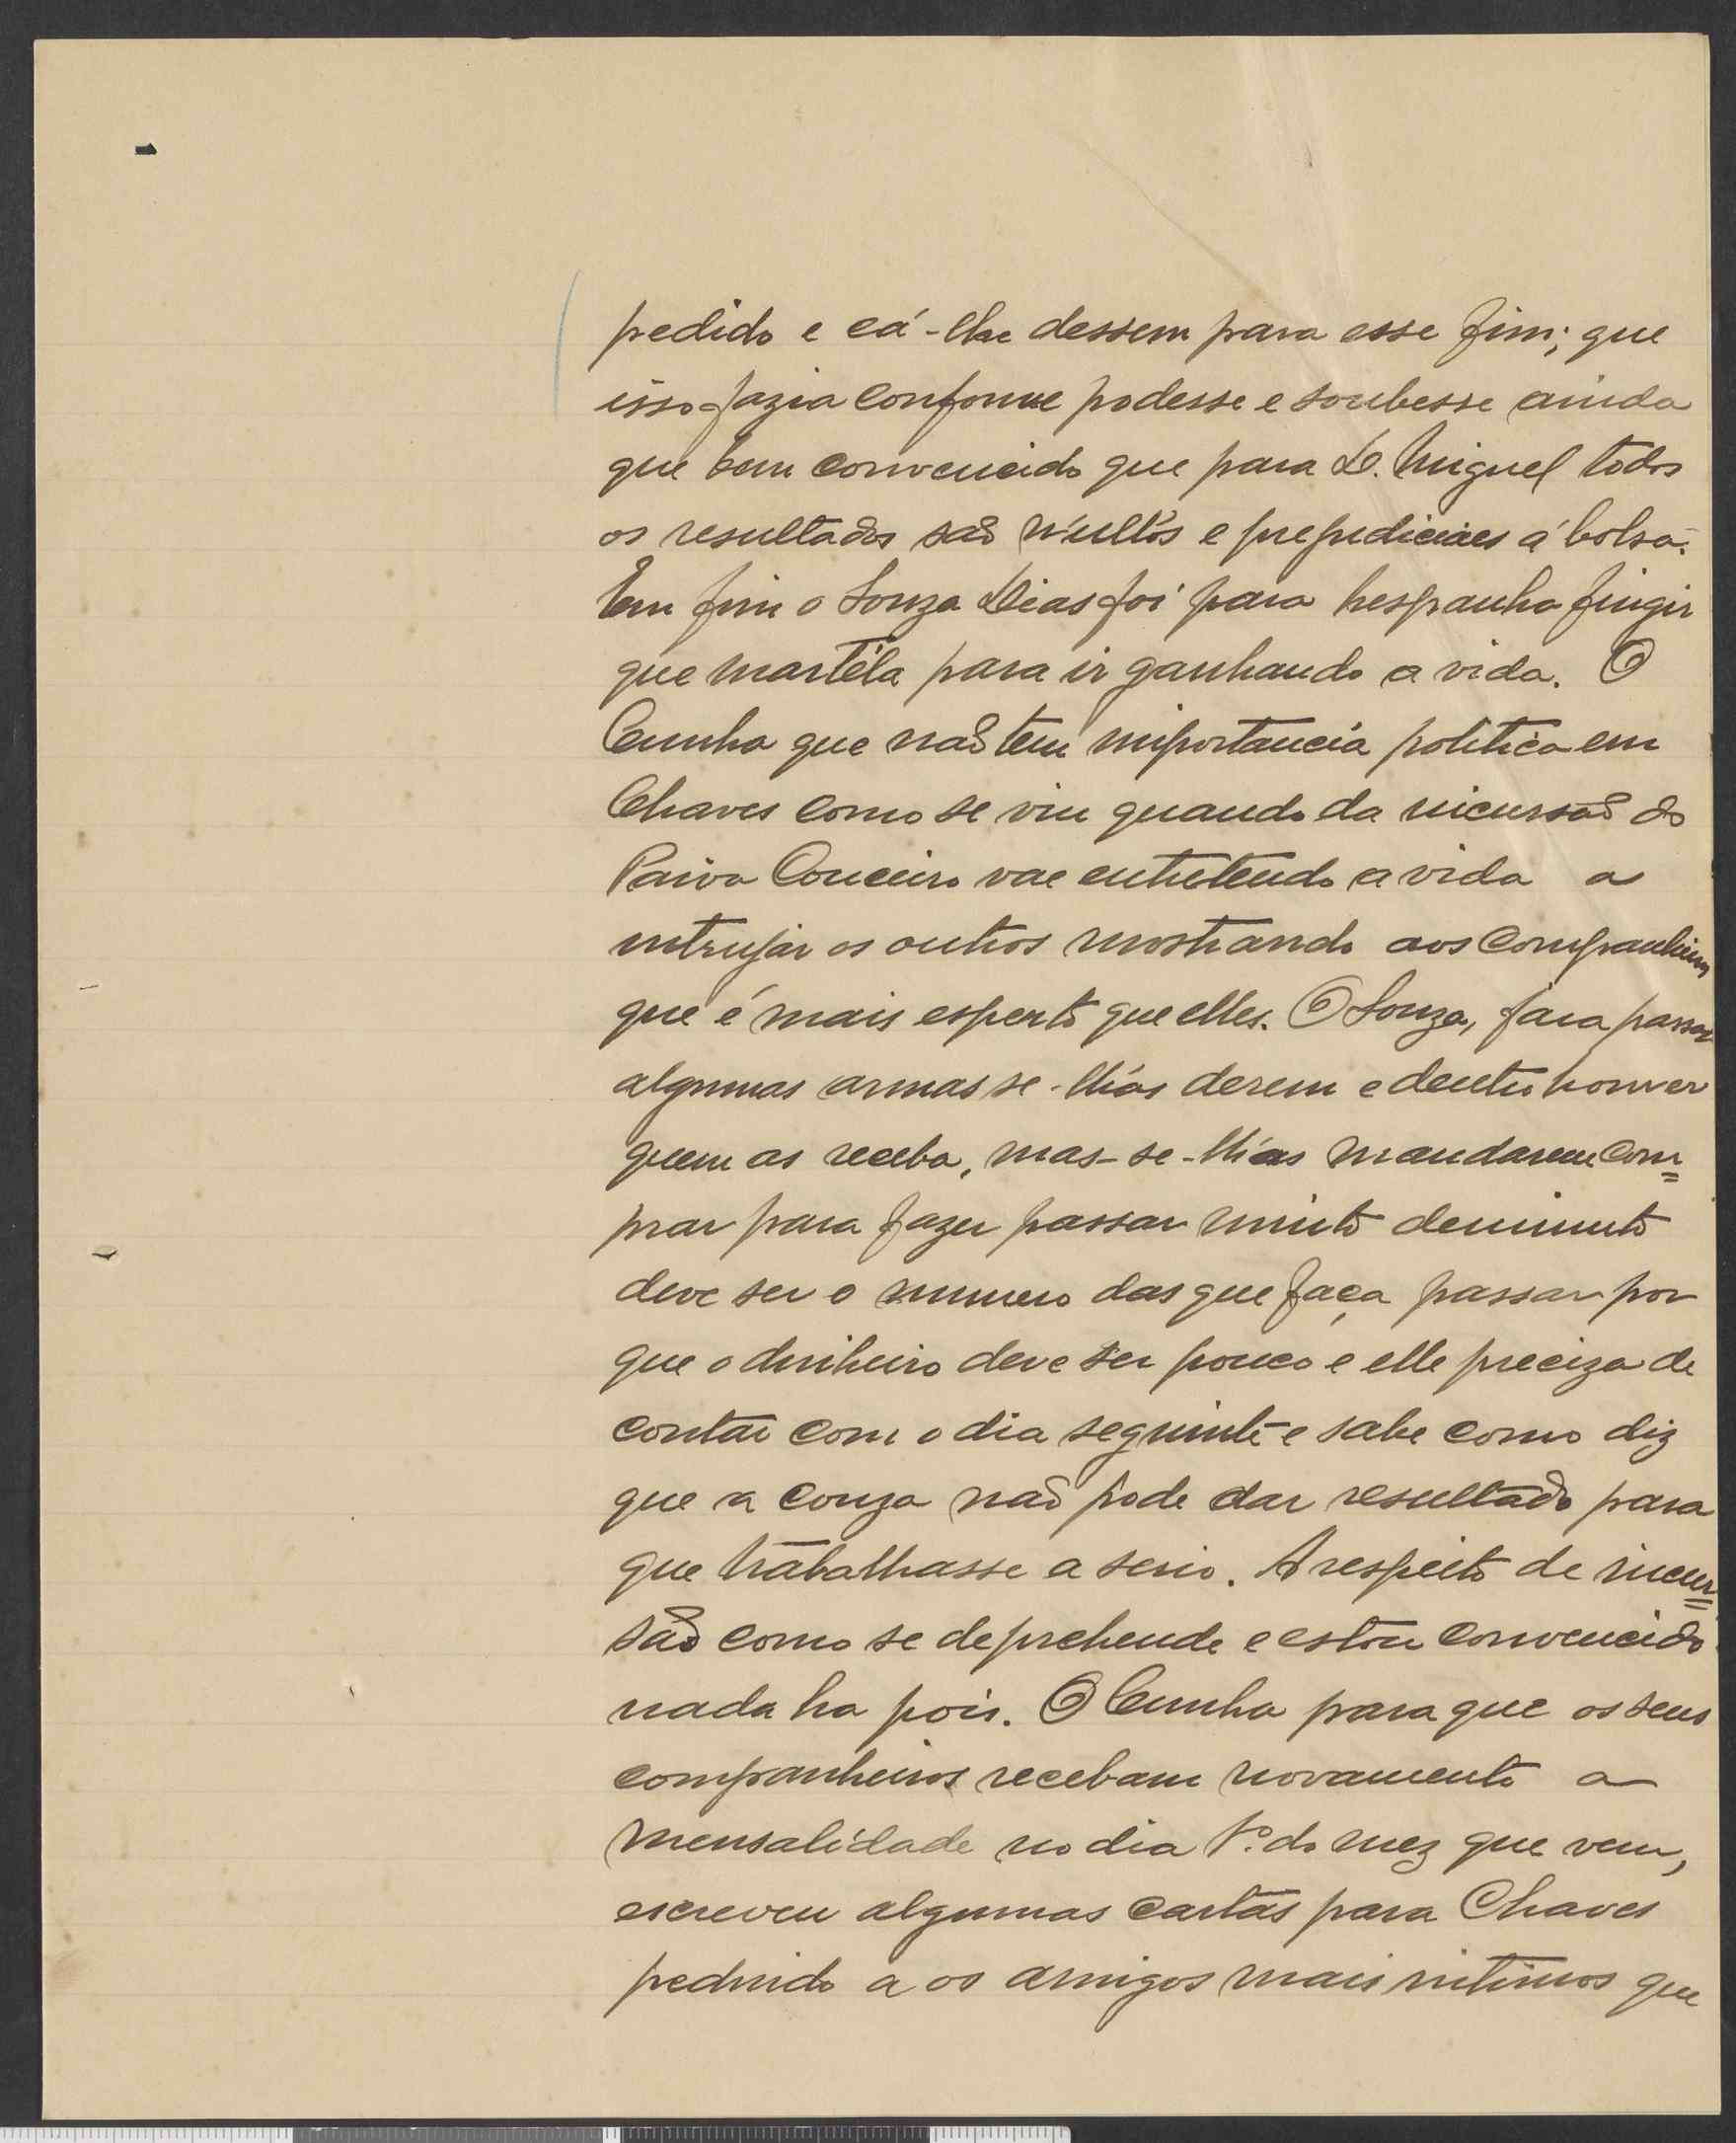 pedido e cá-lhe dessem para esse fim; que
isso fazia conforme podesse e soubesse ainda
que bem convencido que para D. Miguel todos
os resultados são nullos e prejudiciaes á bolsa.
Em fim o Souza Dias foi para hespanha fingir
que martéla para ir ganhando a vida. O
Cunha que não tem importancia politica em
Chaves como se viu quando da incursão do
Paiva Couceiro vae entretendo a vida a
intrujar os outros mostrando aos companheiros
que é mais esperto que elles. O Souza, fara passar
algumas armas se-lhas derem e dentro houver
quem as receba, mas-se-lhas mandarem com=
prar para fazer passar muito deminuto
deve ser o numero das que faça passar por
que o dinheiro deve ser pouco e elle preciza de
contar com o dia seguinte e sabe como diz
que a couza não pode dar resultado para
que trabalhasse a serio. A respeito de incur=
são como se deprehende e estou convencido
nada ha pois. O Cunha para que os seus
companheiros recebam novamente a
mensalidade no dia 1º do mez que vem,
escreveu algumas cartas para Chaves
pedindo a os amigos mais intimos que